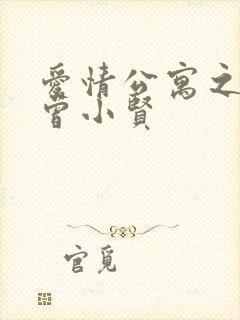 愛情公寓之
曾小賢
官覓